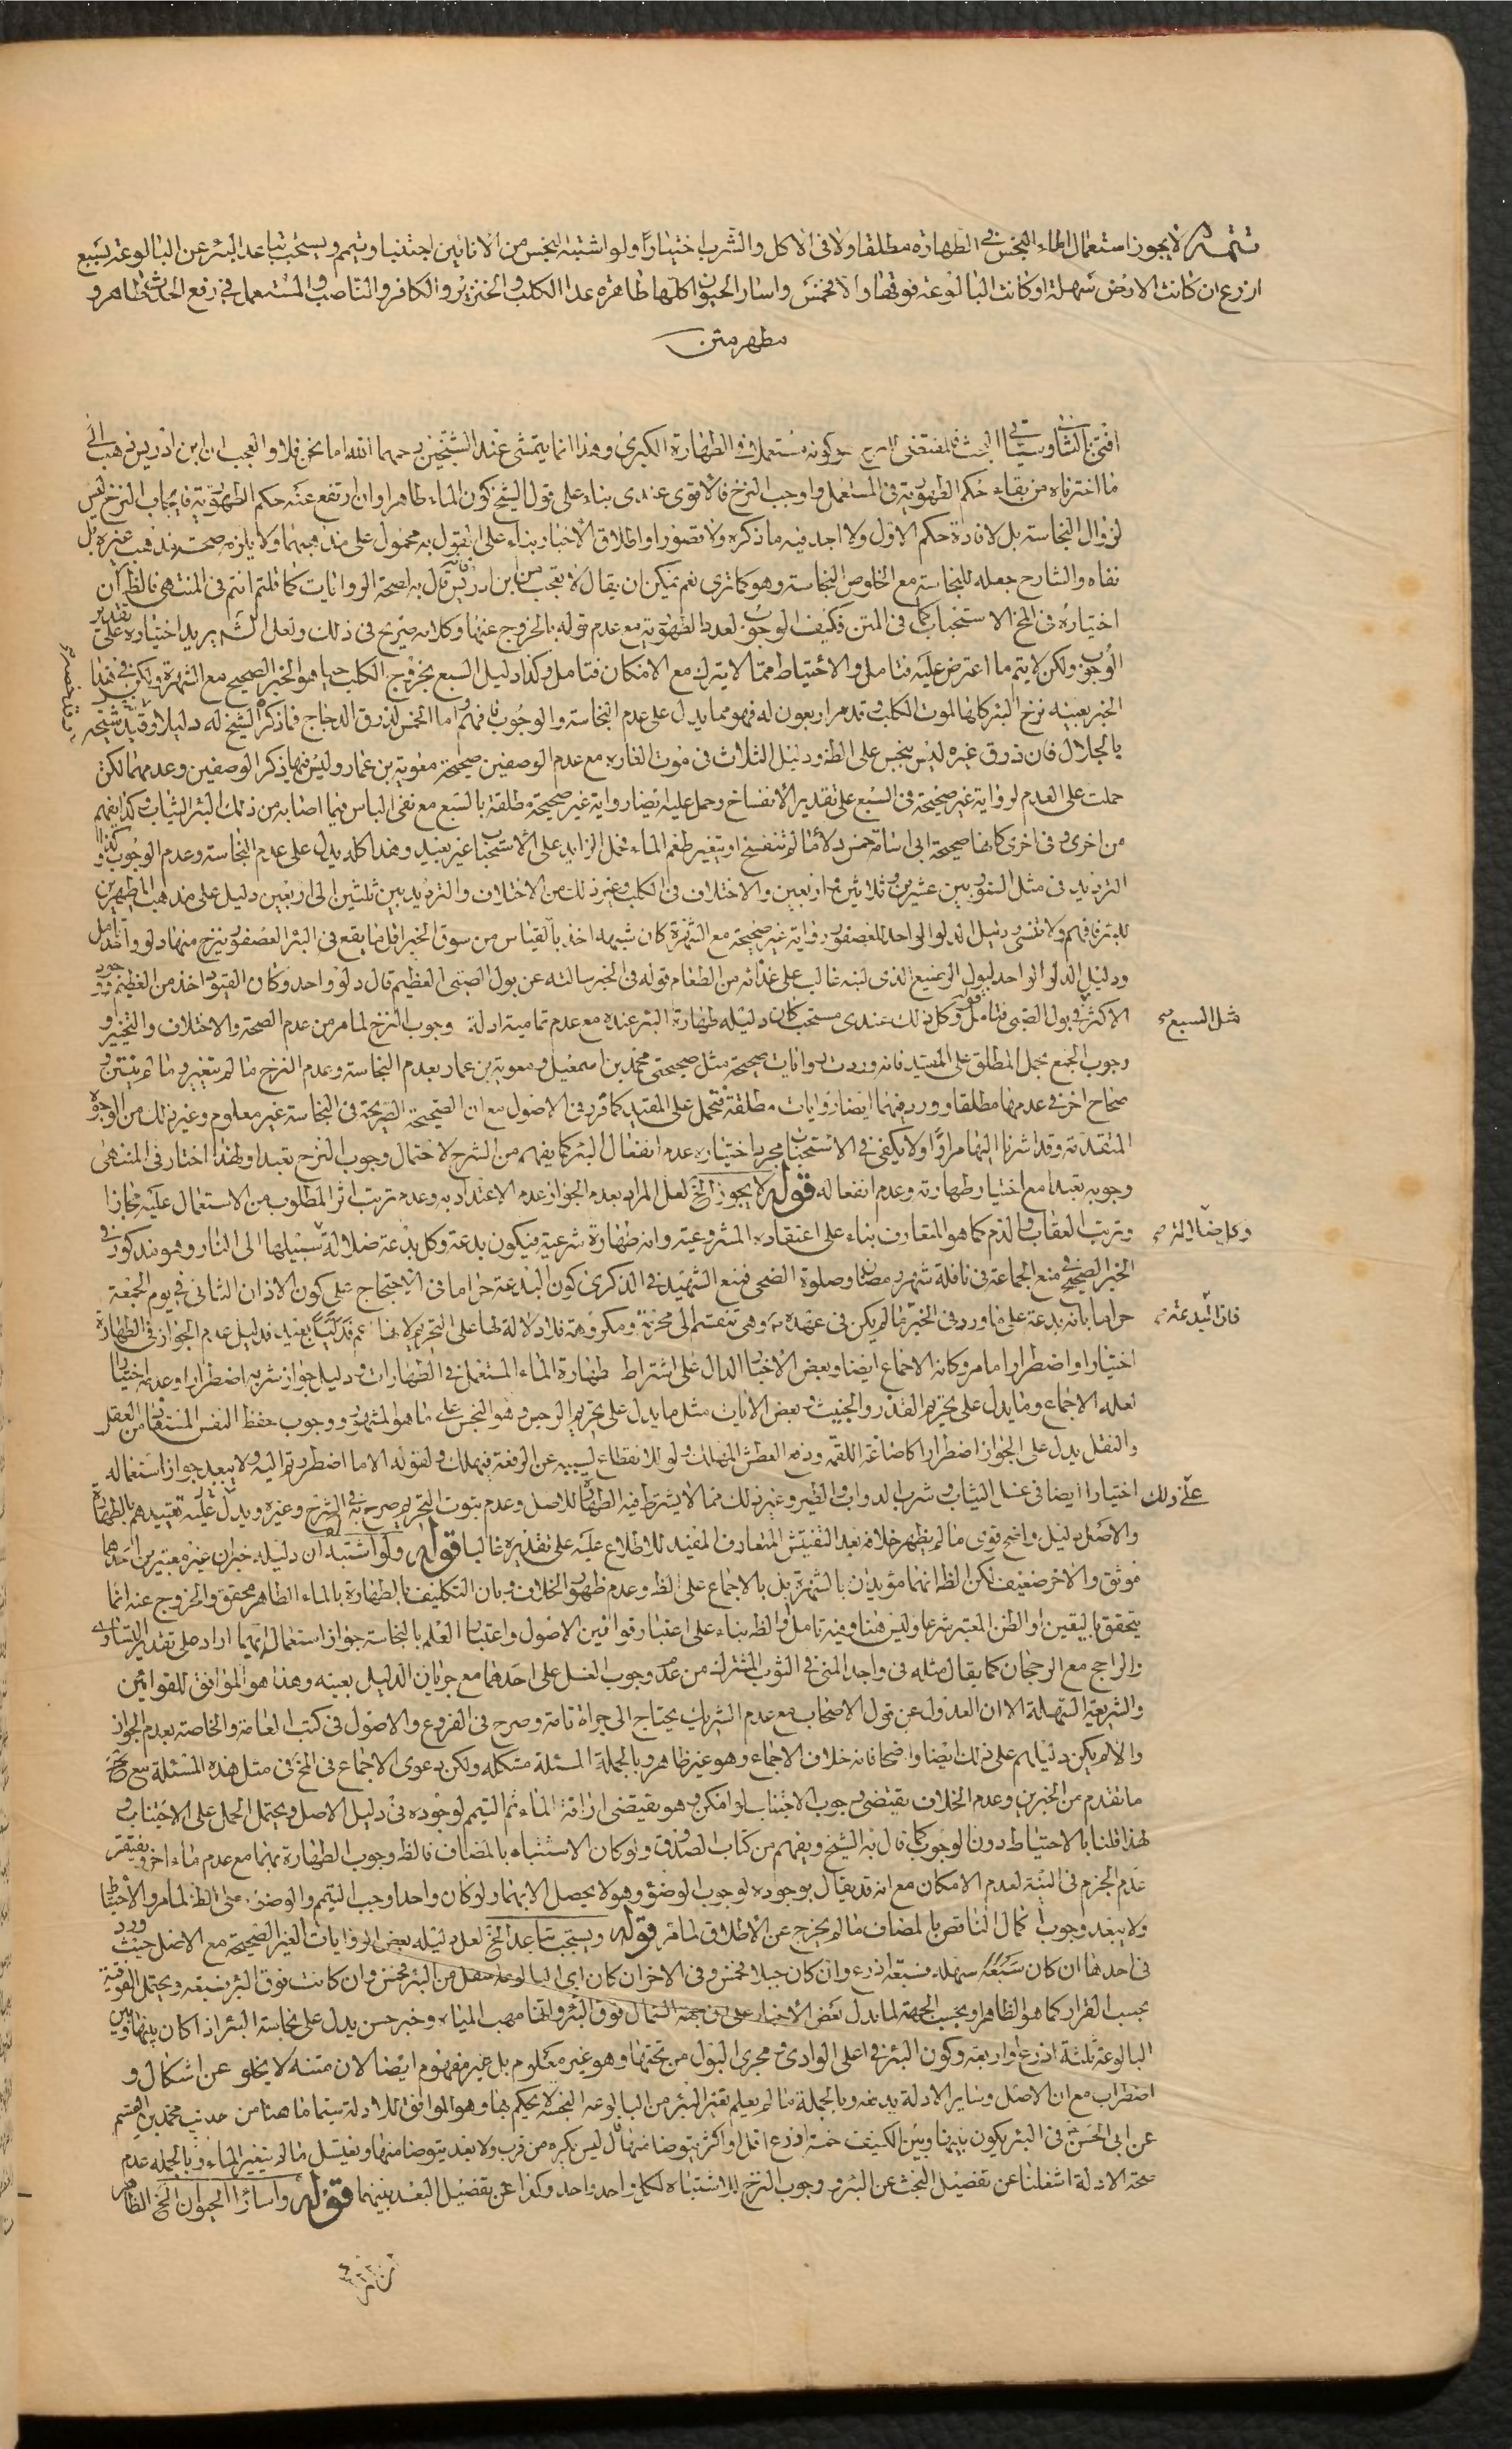 تتمة لا يجوز استعمال الماء النجس في الطهارة مطلقا ولا في الاكل والشرب اختيارا ولو اشتبه النجس من الانائين اجتنبا وتيمم ويستحب تباعد البئر عن البالوعة بسبع
اذرع ان كانت الارض سهلة او كانت البالوعة فوقها والا فخمس واسار الحيوان كلها طاهرة عدا الكلب والخنزير والكافر والناصب والمستعمل في رفع الحدث طاهر و
مطهر متن
المقتضى كونه مستعملا في الطهارة الكبرى وهذا انما يتمشى عند الشيخين رحمهما الله اما نحن فلا والعجب ان ابن ادريس ذهب الى
ما اخترناه من بقاء حكم الطهورية في المستعمل واوجب النزح فالاقوى عندى بناء على قول الشيخ كون الماء طاهرا وان ارتفع عنه حكم الطهورية فايجاب النزح ليس
لزوال النجاسة بل لافادة حكم الاول ولا اجد فيه ما ذكره ولا قصورا واطلاق الاخبار بناء على القول به محمول على مذهبهما ولا يلزمه صحة مذهب غيره بل
نفاه والشارح جعله للنجاسة مع الخلو من النجاسة وهو كما ترى نعم يمكن ان يقال لا تعجب من ابن ادريس فانه قال به لصحة الروايات كما قلتم انتم في المنتهى فالظ ان
اختياره في المخ الاستحباب كما في المتن فكيف الوجوب لعدم الطهورية مع عدم قوله بالخروج عنها وكلامه صريح في ذلك ولعل الش يريد اختياره على تقدير
الوجوب ولكن لا يتم ما اعترض عليه فتامل والاحتياط مما لا يترك مع الامكان فتامل وكذا دليل السبع بخروج الكلب حيا هو الخبر الصحيح مع الشهرة ولكن في هذا
الخبر بعينه نزح البئر كلها لموت الكلب وقد مر اربعون له فهو مما يدل على عدم النجاسة والوجوب فافهم واما الخمس لذرق الدجاج فما ذكر الشيخ له دليلا وقيد شيخه
بالجلال فان ذرق غيره ليس بنجس على الظ ودليل الثلاث في موت الفارة مع عدم الوصفين صحيحة معوية بن عمار وليس فيها ذكر الوصفين وعدمهما لكن
حملت على العدم لرواية غير صحيحة في السبع على تقدير الانفساخ وحمل عليه ايضا رواية غير صحيحة مطلقة بالسبع مع نفى الباس فيما اصابه من ذلك البئر الثياب وكذا يفهم
من اخرى وفي اخرى كانها صحيحة ابى اسامة خمس دلاء ما لم تنفسخ او يتغير طعم الماء فحمل الزايد على الاستحباب غير بعيد وهذا كله يدل على عدم النجاسة وعدم الوجوب وكذا
الترديد في مثل السنور بين عشرين وثلاثين واربعين والاختلاف في الكلب وغير ذلك من الاختلاف والترديد بين ثلثين الى اربعين دليل على مذهب المطهرين
للبئر فافهم ولا تنس ودليل الدلو الواحد للعصفور رواية غير صحيحة مع الشهرة كان شبهه اخذ بالقياس من سوق الخبر اقل ما يقع في البئر العصفور ينزح منها دلو واحد تامل
ودليل الدلو الواحد لبول الرضيع الذى لبنه غالب على غذائه من الطعام قوله في الخبر سالته عن بول الصبى الفطيم قال دلو واحد وكان القيد اخذ من الفطيم
الاكثر في بول الصبى فتامل وكل ذلك عندى مستحب كان دليله طهارة البئر عنده مع عدم تمامية ادلة وجوب النزح لما مر من عدم الصحة والاختلاف والتخيير و
مثل السبع
وجوب الجمع بحمل المطلق على المقيد فانه وردت روايات صحيحة مثل صحيحتى محمد بن اسمعيل ومعوية بن عمار بعدم النجاسة وعدم النزح ما لم يتغير وما لم ينتن و
صحاح اخر في عدمها مطلقا وورد فيهما ايضا روايات مطلقة فتحمل على المقيد كما قرر في الاصول مع ان الصحيحة الصريحة في النجاسة غير معلوم وغير ذلك من الوجوه
المتقدمة وقد اشرنا اليها مرارا ولا يكفى في الاستحباب مجرد اختياره عدم انفعال البئر كما يفهم من الشرح لاحتمال وجوب النزح تعبدا ولهذا اختار في المنتهى
وجوبه تعبدا مع اختيار طهارته وعدم انفعاله قوله لا يجوز الخ لعل المراد بعدم الجواز عدم الاعتداد به وعدم ترتب اثر المطلوب من الاستعمال عليه مجازا
وترتب العقاب والذم كما هو المتعارف بناء على اعتقاده المشروعية وانه طهارة شرعية فيكون بدعة وكل بدعة ضلالة سبيلها الى النار وهو مذكور في
الخبر الصحيح في منع الجماعة في نافلة شهر رمضان وصلوة الضحى فمنع الشهيد في الذكرى كون البدعة حراما في الاحتجاج على كون الاذان الثانى في يوم الجمعة
حراما بانه بدعة على ما ورد في الخبر مما لم يكن في عهده ص وهى تنقسم الى محرمة ومكروهة فلا دلالة لها على التحريم بعيد فدليل عدم الجواز في الطهارة
فان البدعة
اختيارا واضطرارا ما مر وكانه الاجماع ايضا وبعض الاخبار الدال على اشتراط طهارة الماء المستعمل في الطهارات ودليل جواز شربه اضطرارا وعدمه اختيارا
لعله الاجماع وما يدل على تحريم القذر والخبيث وبعض الايات مثل ما يدل على تحريم الرجس وهو النجس على ما هو المشهور ووجوب حفظ النفس المستفاد من العقل
والنقل يدل على الجواز اضطرارا كاضاعة اللقمة ودفع العطش المهلك ولو للانقطاع بسببه عن الرفقة فيهلك ولقوله الا ما اضطررتم اليه ولا يبعد جواز استعماله
اختيارا ايضا في غسل الثياب وشرب الدواب والطير وغير ذلك مما لا يشترط فيه الطهارة للاصل وعدم ثبوت التحريم صرح به في الشرح وغيره ويدل عليه تقييدهم بالطهارة
على ذلك
والاصل دليل واضح قوى ما لم يظهر خلافه بعد التفتيش المتعارف المفيد للاطلاع عليه على تقديره غالبا قوله ولو اشتبه ان دليله خبران غير معتبرين احدهما
موثق والاخر ضعيف لكن الظ انهما مؤيدان بالشهرة بل بالاجماع على الظ وعدم ظهور الخلاف وبان التكليف بالطهارة بالماء الطاهر محقق والخروج عنه انما
يتحقق باليقين او الظن المعتبر شرعا وليس هنا وفيه تامل والظ بناء على اعتبار قوانين الاصول واعتبار العلم بالنجاسة جواز استعمال ايهما اراد على تقدير التساوى
والراجح مع الرجحان كما يقال مثله في واجد المنى في الثوب المشترك من عدم وجوب الغسل على احدهما مع جريان الدليل بعينه وهذا هو الموافق للقوانين
والشريعة السهلة الا ان العدول عن قول الاصحاب مع عدم الشريك يحتاج الى جراة تامة وصرح في الفروع والاصول في كتب العامة والخاصة بعدم الجواز
والا لم يكن دليلهم على ذلك ايضا واضحا فانه خلاف الاجماع وهو غير ظاهر وبالجملة المسئلة مشكلة ولكن دعوى الاجماع في المخ في مثل هذه المسئلة مع
ما تقدم من الخبرين وعدم الخلاف يقتضى وجوب الاجتناب لو امكن وهو يقتضى اراقة الماء ثم التيمم لوجوده في دليل الاصل ويحتمل الحمل على الاجتناب و
لهذا قلنا بالاحتياط دون الوجوب كما قال به الشيخ ويفهم من كتاب الصدوق ولو كان الاشتباه بالمضاف فالظ وجوب الطهارة بهما مع عدم ماء اخر ويفتقر
عدم الجزم في النية لعدم الامكان مع انه قد يقال بوجوده لوجوب الوضوء وهو لا يحصل الا بهما ولو كان واحدا وجب التيمم والوضوء على الظ لما مر والاحتياط
ولا يبعد وجوب اكمال الناقص بالمضاف ما لم يخرج عن الاطلاق لما مر قوله ويستحب تباعد الخ لعل دليله بعض الروايات الغير الصحيحة مع الاصل حيث ورد
في احدها ان كان سهلة فسبعة اذرع وان كان جبلا فخمس وفي الاخر ان كان اى البالوعة اسفل من البئر فخمس وان كانت فوق البئر فسبعة ويحتمل الفوقية
بحسب القرار كما هو الظاهر وبحسب الجهة لما يدل بعض الاخبار على ان جهة الشمال فوق البئر وانها مهب المياه وخبر حسن يدل على نجاسة البئر اذا كان بينها وبين
البالوعة ثلثة اذرع او اربعة وكون البئر في اعلى الوادى ومجرى البول من تحتها وهو غير معلوم بل غير مفهوم ايضا لان متنه لا يخلو عن اشكال و
اضطراب مع ان الاصل وساير الادلة يدفعه وبالجملة ما لم يعلم تغير البئر من البالوعة النجسة لا يحكم بها وهو الموافق للادلة سيما ما هنا من حديث محمد بن القسم
عن ابى الحسن ع في البئر يكون بينها وبين الكنيف خمسة اذرع اقل او اكثر يتوضا منها قال ليس يكره من قرب ولا بعد يتوضا منها ويغتسل ما لم يتغير الماء وبالجملة عدم
صحة الادلة اشغلنا عن تفصيل البحث عن البئر ووجوب النزح للاشتباه لكل واحد واحد وكذا عن تفصيل البعد بينهما قوله واسار الحيوان الخ الظاهر